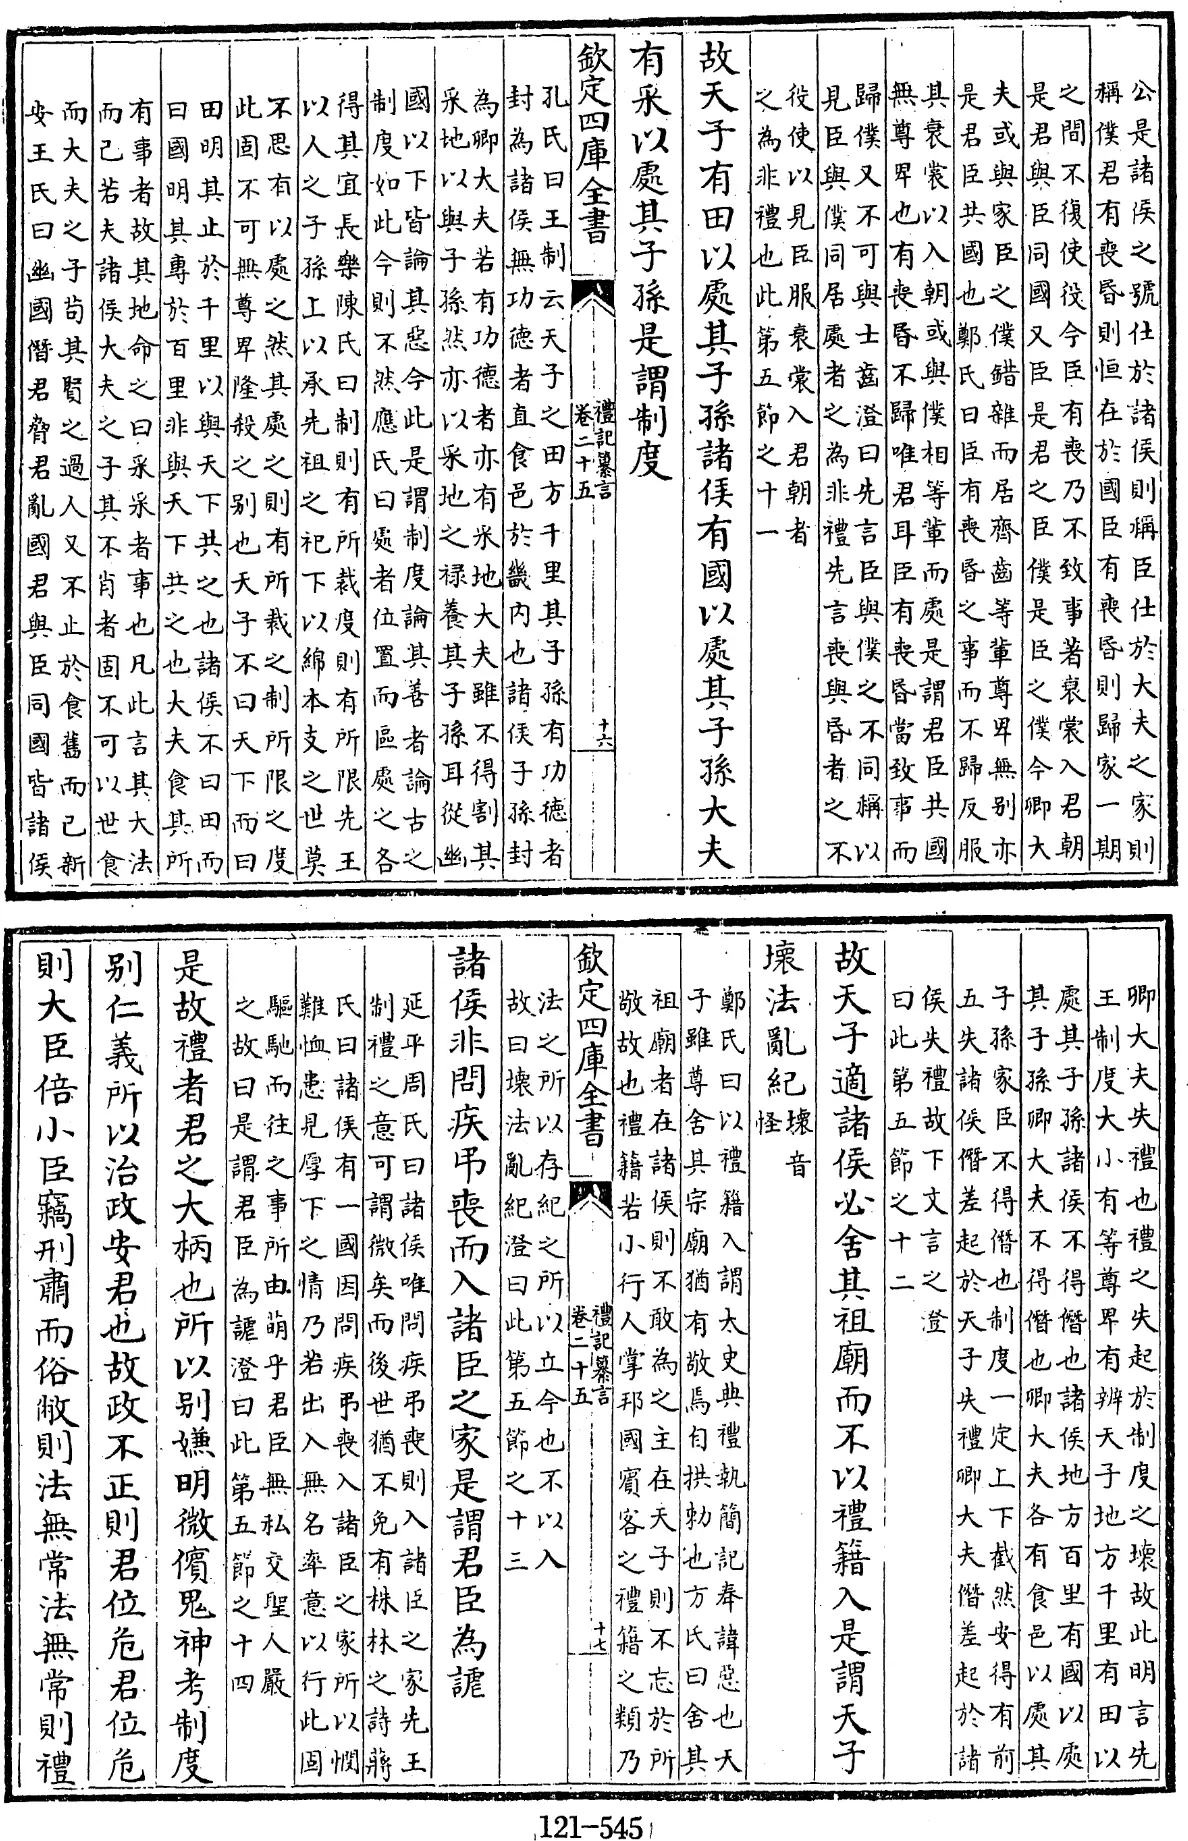 公是諸侯之號仕於諸侯則稱臣仕於大夫之家則
稱僕君有喪昏則恒在於國臣有喪昏則歸家一期
之間不復使役今臣有喪乃不致事著衰裳入君朝
是君與臣同國又臣是君之臣僕是臣之僕今卿大
夫或與家臣之僕錯雜而居齊齒等輩尊卑無别亦
是君臣共國也鄭氏曰臣有喪昏之事而不歸反服
其衰裳以入朝或與僕相等輩而處是謂君臣共國
無尊卑也有喪昏不歸唯君耳臣有喪昏當致事而
歸僕又不可與士齒澄曰先言臣與僕之不同稱以
見臣與僕同居處者之為非禮先言喪與昏者之不
役使以見臣服衰裳入君朝者
之為非禮也此第五節之十一
故天子有田以處其子孫諸侯有國以處其子孫大夫
有采以處其子孫是謂制度
欽定四庫全書
禮記纂言
卷二十五
十六
孔氏曰王制云天子之田方千里其子孫有功德者
封為諸侯無功德者直食邑於畿内也諸侯子孫封
為卿大夫若有功德者亦有采地大夫雖不得割其
采地以與子孫然亦以采地之禄養其子孫耳從幽
國以下皆論其惡今此是謂制度論其善者論古之
制度如此今則不然應氏曰處者位置而區處之各
得其宜長樂陳氏曰制則有所裁度則有所限先王
以人之子孫上以承先祖之祀下以綿本支之世莫
不思有以處之然其處之則有所裁之制所限之度
此固不可無尊卑隆殺之别也天子不曰天下而曰
田明其止於千里以與天下共之也諸侯不曰田而
曰國明其專於百里非與天下共之也大夫食其所
有事者故其地命之曰采采者事也凡此言其大法
而已若夫諸侯大夫之子其不肖者固不可以世食
而大夫之子苟其賢之過人又不止於食舊而已新
安王氏曰幽國僭君脅君亂國君與臣同國皆諸侯
卿大夫失禮也禮之失起於制度之壞故此明言先
王制度大小有等尊卑有辨天子地方千里有田以
處其子孫諸侯不得僭也諸侯地方百里有國以處
其子孫卿大夫不得僭也卿大夫各有食邑以處其
子孫家臣不得僭也制度一定上下截然安得有前
五失諸侯僭差起於天子失禮卿大夫僭差起於諸
侯失禮故下文言之澄
曰此第五節之十二
故天子適諸侯必舍其祖廟而不以禮籍入是謂天子
壞法亂紀壞音
怪
鄭氏曰以禮籍入謂太史典禮執簡記奉諱惡也天
子雖尊舍其宗廟猶有敬焉自拱勑也方氏曰舍其
祖廟者在諸侯則不敢為之主在天子則不忘於所
敬故也禮籍若小行人掌邦國賓客之禮籍之類乃
欽定四庫全書
禮記纂言
卷二十五
十七
法之所以存紀之所以立今也不以入
故曰壞法亂紀澄曰此第五節之十三
諸侯非問疾弔喪而入諸臣之家是謂君臣為謔
延平周氏曰諸侯唯問疾弔喪則入諸臣之家先王
制禮之意可謂微矣而後世猶不免有株林之詩蔣
氏曰諸侯有一國因問疾弔喪入諸臣之家所以憫
難恤患見厚下之情乃若出入無名率意以行此固
驅馳而往之事所由萌乎君臣無私交聖人嚴
之故曰是謂君臣為謔澄曰此第五節之十四
是故禮者君之大柄也所以别嫌明微儐鬼神考制度
别仁義所以治政安君也故政不正則君位危君位危
則大臣倍小臣竊刑肅而俗敝則法無常法無常則禮
121-545